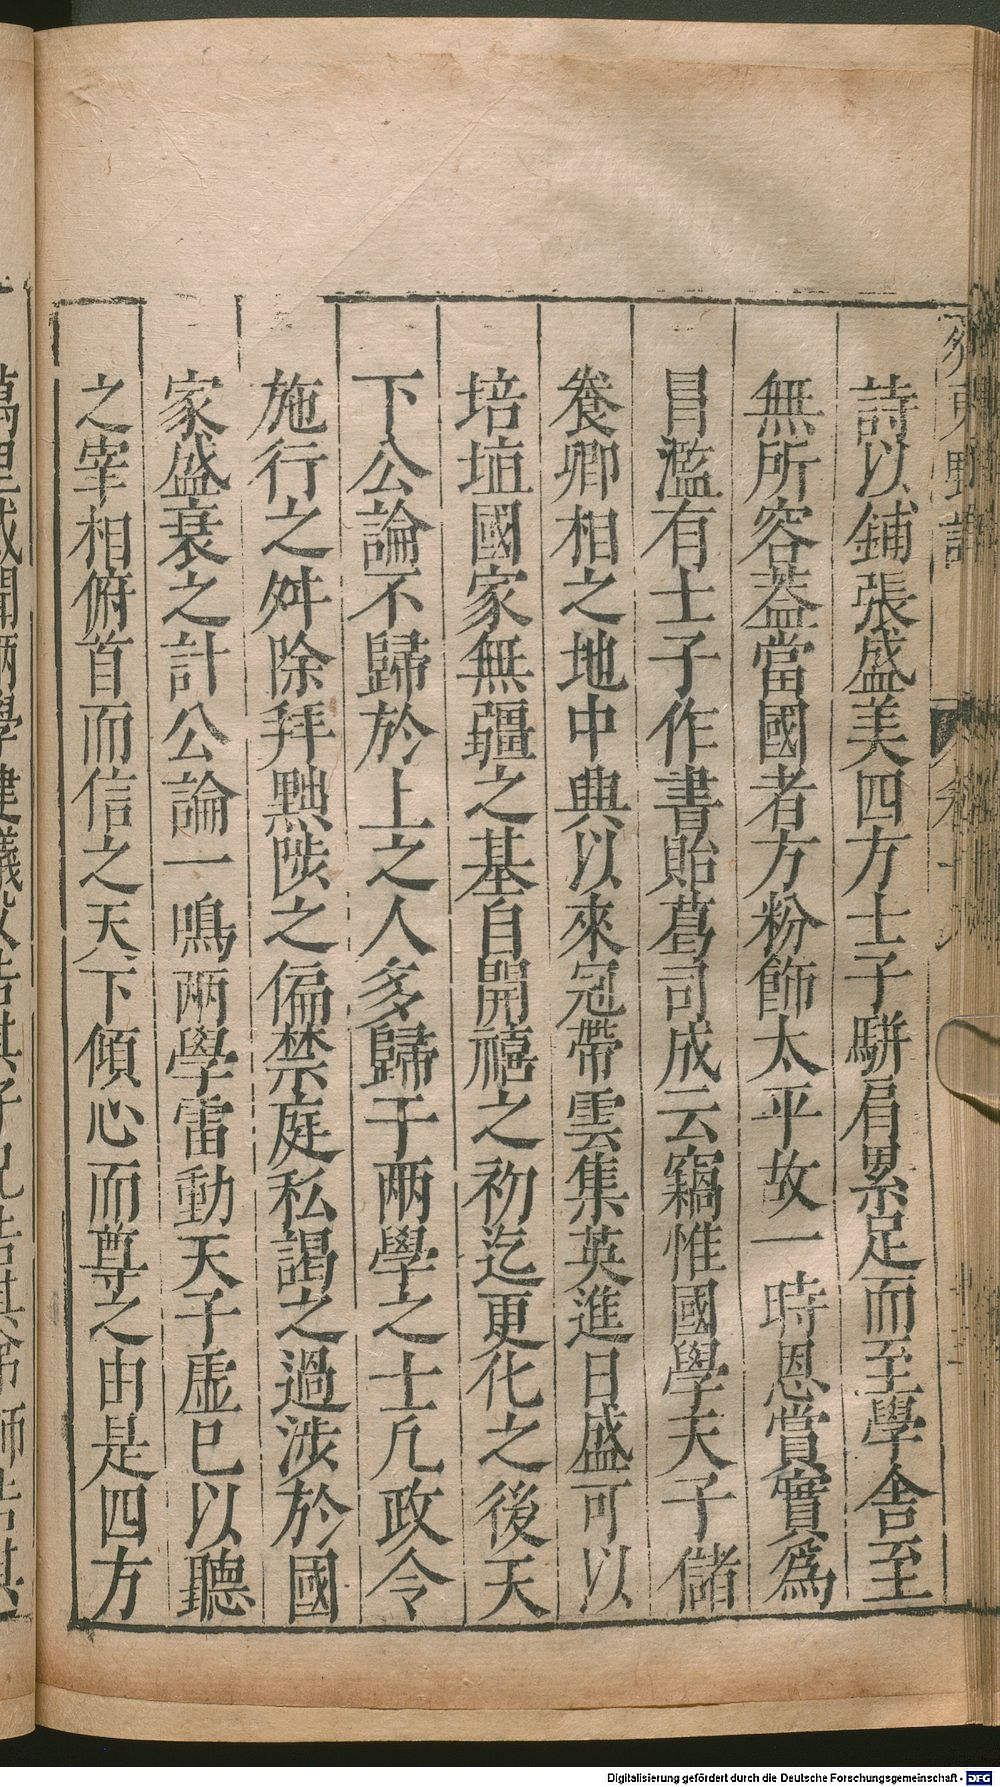 詩以鋪張盛美四方士子騈肩累足而至學舎至
無所容葢當國者方粉飾太平故一時恩賞實爲
冒濫有士子作書貽葛司成云竊惟國學天子儲
養卿相之地中興以來冠帶雲集英進日盛可以
培埴國家無疆之基自開禧之初迄更化之後天
下公論不歸於上之人多歸于兩學之士凢政令
施行之舛除拜黜陟之偏禁庭私謁之過涉於國
家盛衰之計公論一鳴兩學雷動天子虛已以聽
之宰相俯首而信之天下傾心而尊之由是四方
Digitalisierung gefördert durch die Deutsche Forschungsgemeinschaft - DFG